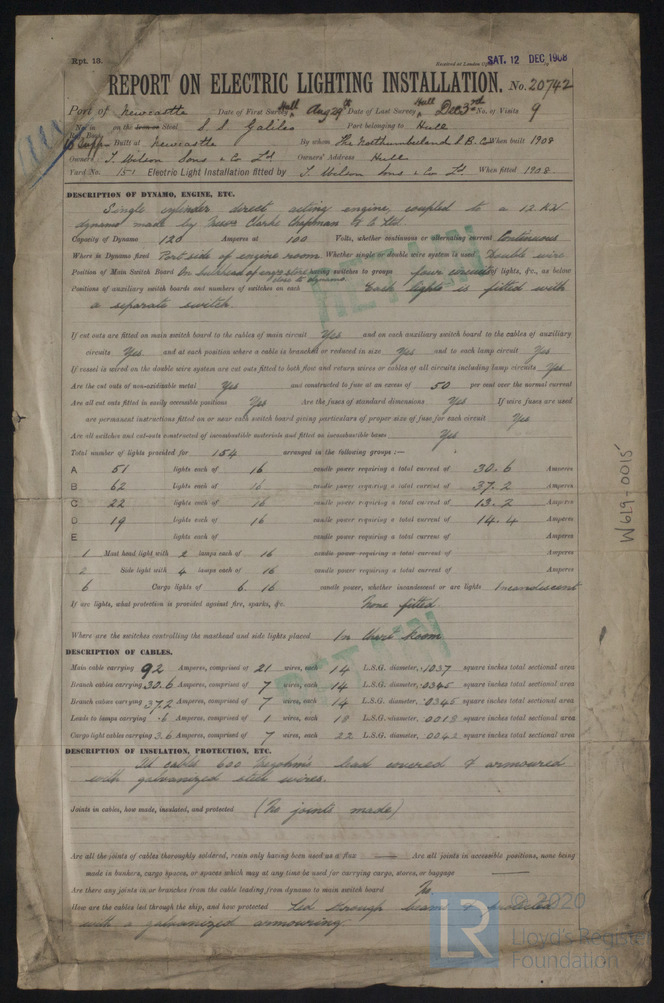 Rpt. 13.
Received at London
SAT. 12 DEC 1908
REPORT ON ELECTRIC LIGHTING INSTALLATION. No. 20742
Port of Newcastle Date of First Survey Hull Aug 29th Date of Last Survey Hull Dec 3rd No. of Visits 9
No. in on the Iron or Steel S S Galileo Port belonging to Hull
Reg. Book 6 Supp Built at Newcastle By whom The Northumberland S B Co When built 1908
Owners T Wilson Sons & Co Ld Owners' Address Hull
Yard No. 151 Electric Light Installation fitted by T Wilson Sons & Co Ld When fitted 1908
DESCRIPTION OF DYNAMO, ENGINE, ETC.
Single cylinder direct acting engine, coupled to a 12 KW
dynamo made by Messrs Clarke Chapman & Co Ltd
Capacity of Dynamo 120 Amperes at 100 Volts, whether continuous or alternating current Continuous
Where is Dynamo fixed Port side of engine room Whether single or double wire system is used Double wire
Position of Main Switch Board On bulkhead of engrs store having switches to groups four circuits of lights, &c., as below
close to dynamo
Positions of auxiliary switch boards and numbers of switches on each Each lights is fitted with
a separate switch
If cut outs are fitted on main switch board to the cables of main circuit Yes and on each auxiliary switch board to the cables of auxiliary
circuits Yes and at each position where a cable is branched or reduced in size Yes and to each lamp circuit Yes
If vessel is wired on the double wire system are cut outs fitted to both flow and return wires or cables of all circuits including lamp circuits Yes
Are the cut outs of non-oxidizable metal Yes and constructed to fuse at an excess of 50 per cent over the normal current
Are all cut outs fitted in easily accessible positions Yes Are the fuses of standard dimensions Yes If wire fuses are used
are permanent instructions fitted on or near each switch board giving particulars of proper size of fuse for each circuit Yes
Are all switches and cut-outs constructed of incombustible materials and fitted on incombustible bases Yes
Total number of lights provided for 154 arranged in the following groups :—
A 51 lights each of 16 candle power requiring a total current of 30.6 Amperes
B 62 lights each of 16 candle power requiring a total current of 37.2 Amperes
C 22 lights each of 16 candle power requiring a total current of 13.2 Amperes
D 19 lights each of 16 candle power requiring a total current of 14.4 Amperes
E lights each of candle power requiring a total current of Amperes
1 Mast head light with 2 lamps each of 16 candle power requiring a total current of Amperes
2 Side light with 4 lamps each of 16 candle power requiring a total current of Amperes
6 Cargo lights of 6. 16 candle power, whether incandescent or arc lights Incandescent
If arc lights, what protection is provided against fire, sparks, &c. None fitted
Where are the switches controlling the masthead and side lights placed In Chart Room
DESCRIPTION OF CABLES.
Main cable carrying 92 Amperes, comprised of 21 wires, each 14 L.S.G. diameter, .1037 square inches total sectional area
Branch cables carrying 30.6 Amperes, comprised of 7 wires, each 14 L.S.G. diameter, .0345 square inches total sectional area
Branch cables carrying 37.2 Amperes, comprised of 7 wires, each 14 L.S.G. diameter, .0345 square inches total sectional area
Leads to lamps carrying .6 Amperes, comprised of 1 wires, each 18 L.S.G. diameter, .0018 square inches total sectional area
Cargo light cables carrying 3.6 Amperes, comprised of 7 wires, each 22 L.S.G. diameter, .0042 square inches total sectional area
DESCRIPTION OF INSULATION, PROTECTION, ETC.
cable 600 megohms lead covered & armoured
with galvanized steel wires.
Joints in cables, how made, insulated, and protected (No joints made)
Are all the joints of cables thoroughly soldered, resin only having been used as a flux — Are all joints in accessible positions, none being
made in bunkers, cargo spaces, or spaces which may at any time be used for carrying cargo, stores, or baggage —
Are there any joints in or branches from the cable leading from dynamo to main switch board No
How are the cables led through the ship, and how protected Led through beams & protected
with a galvanized armouring
W619-0015
LR
© 2020
Lloyd's Register
Foundation